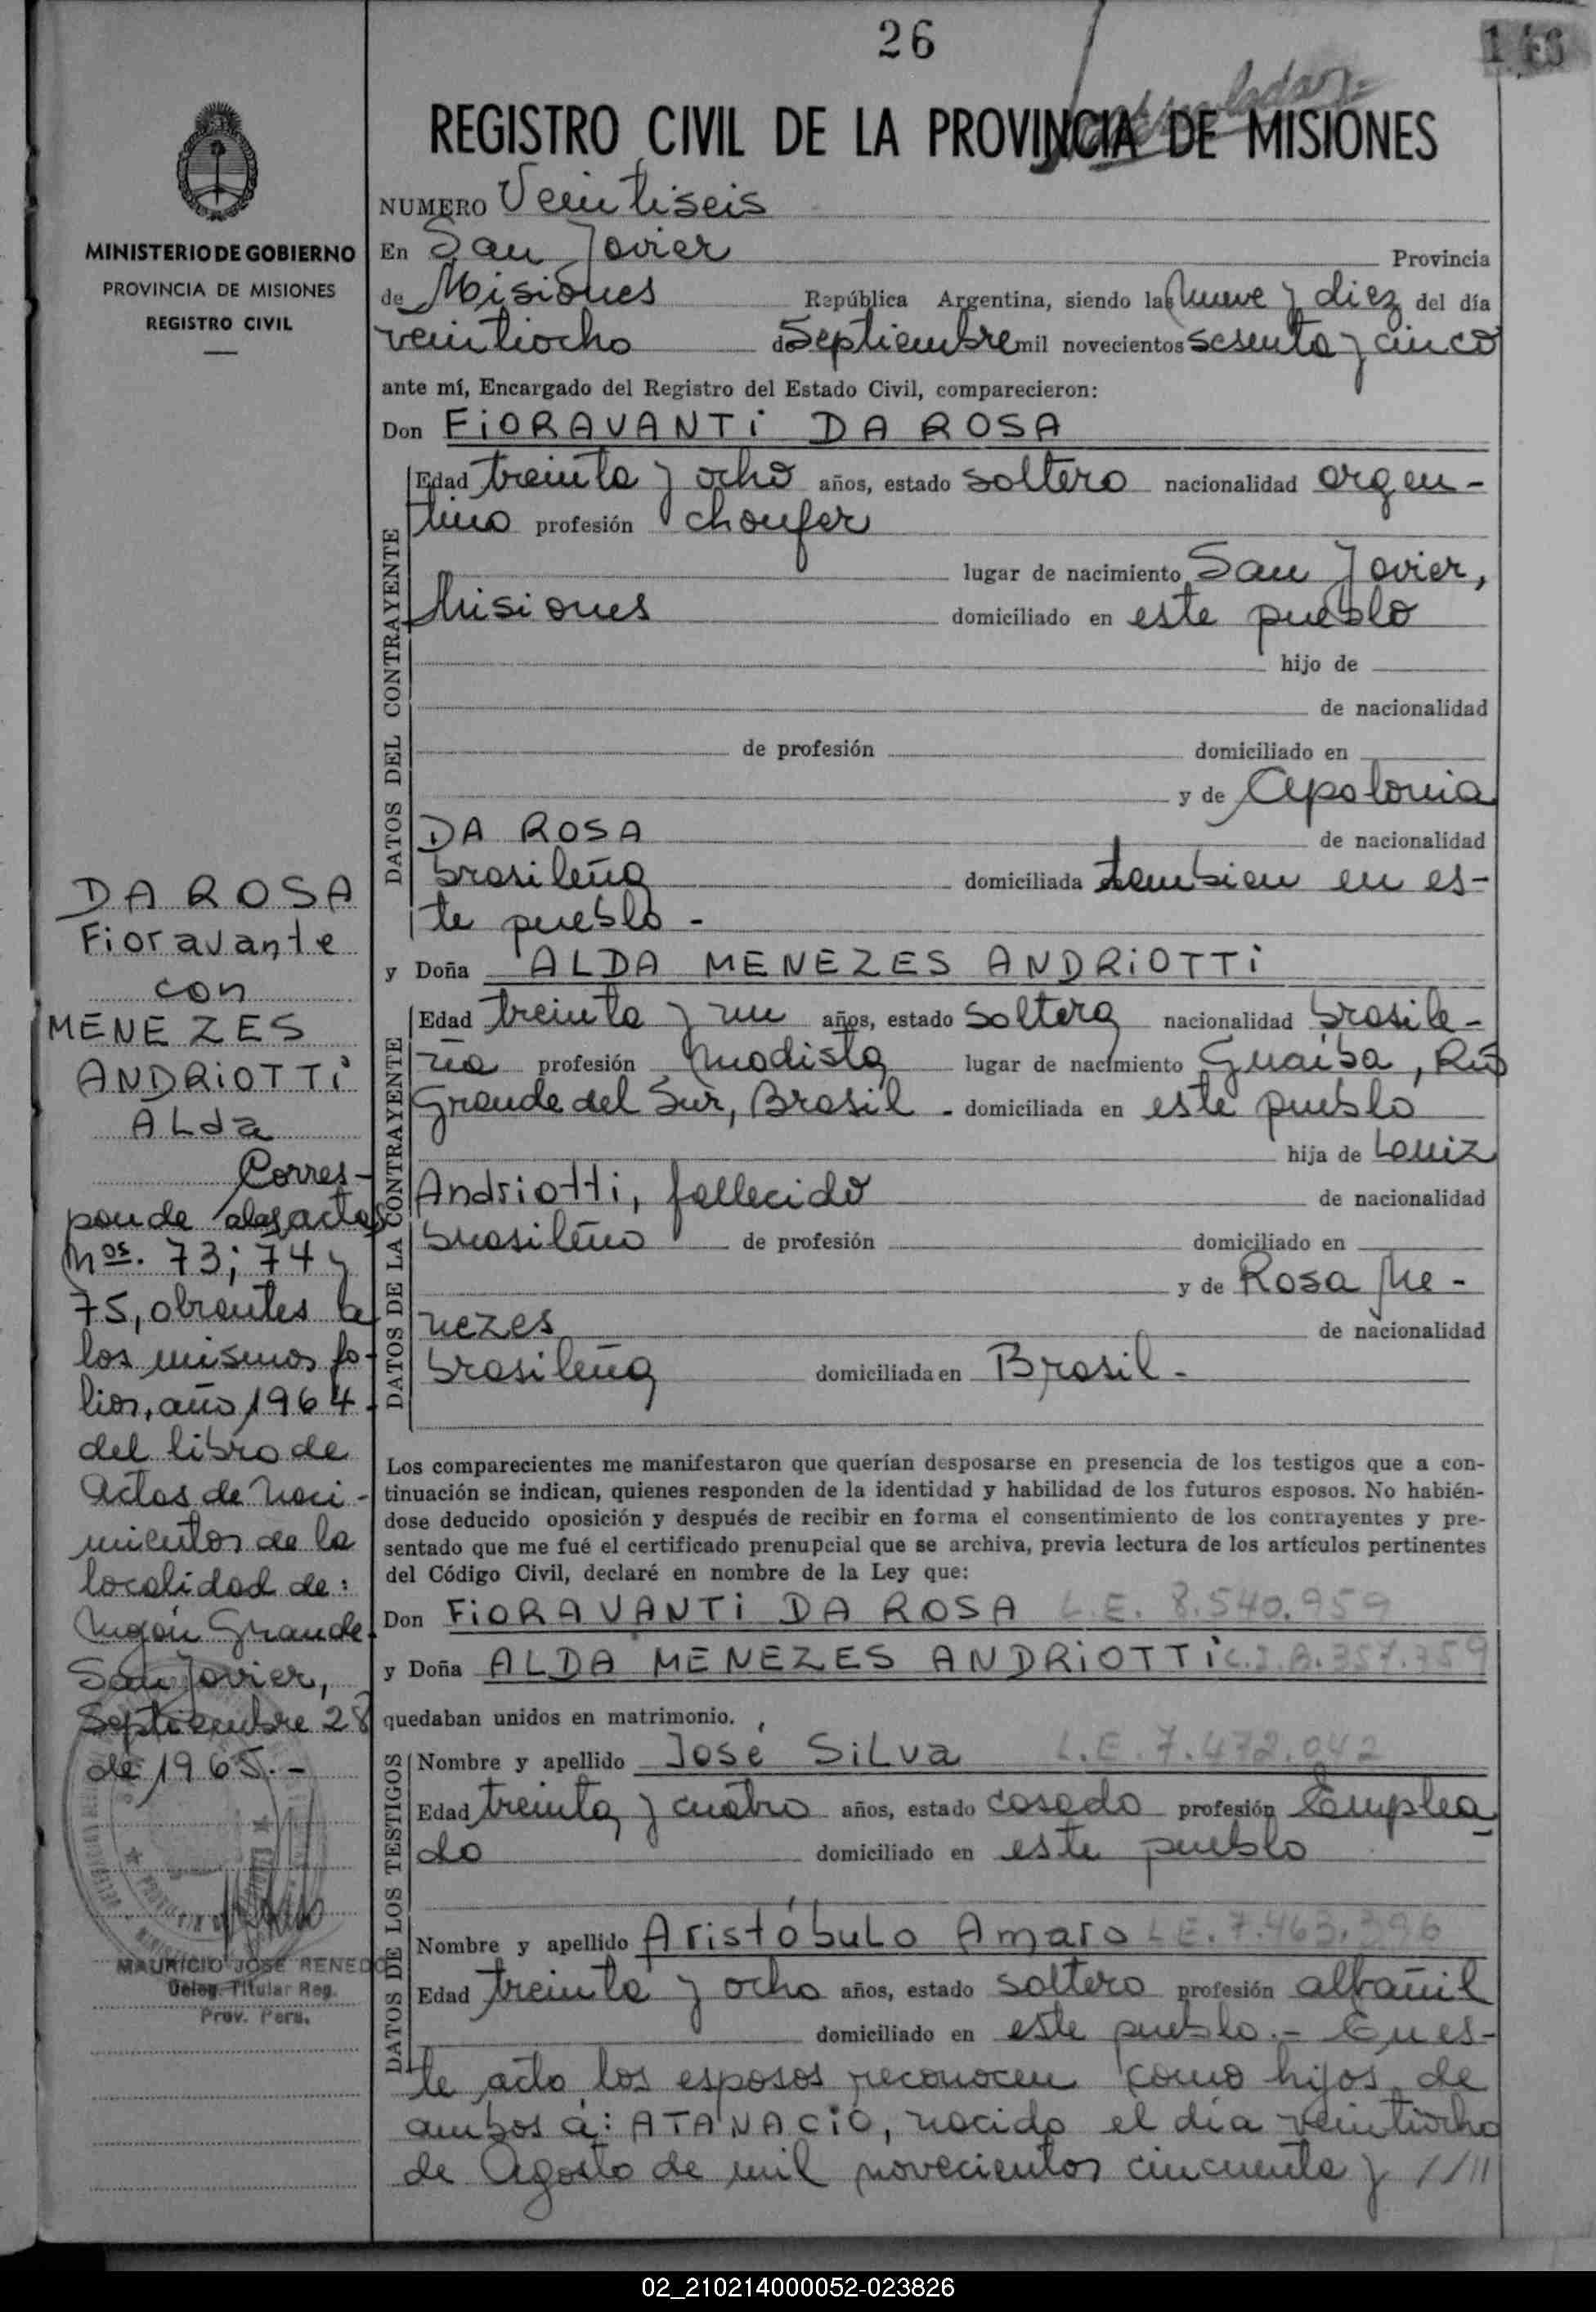 26
146
REGISTRO CIVIL DE LA PROVINCIA DE MISIONES
MINISTERIO DE GOBIERNO
PROVINCIA DE MISIONES
REGISTRO CIVIL
NUMERO Veintiseis
En San Javier Provincia
de Misiones República Argentina, siendo las nueve y diez del día
veintiocho de Septiembre mil novecientos sesenta y cinco
ante mí, Encargado del Registro del Estado Civil, comparecieron:
Don FiORAVANTi DA ROSA
DATOS DEL CONTRAYENTE
Edad treinta y ocho años, estado soltero nacionalidad argen-
tino profesión choufer
lugar de nacimiento San Javier,
Misiones domiciliado en este pueblo
hijo de
de nacionalidad
de profesión domiciliado en
y de Apolonia
DA ROSA de nacionalidad
brasileña domiciliada tambien en es-
te pueblo -
y Doña ALDA MENEZES ANDRiOTTi
DATOS DE LA CONTRAYENTE
Edad treinta y un años, estado soltera nacionalidad brasile-
ña profesión modista lugar de nacimiento Guaiba, Rio
Grande del Sur, Brasil - domiciliada en este pueblo
hija de Louiz
Andriotti, fallecido de nacionalidad
brasileño de profesión domiciliado en
y de Rosa Me-
nezes de nacionalidad
brasileña domiciliada en Brasil -
Los comparecientes me manifestaron que querían desposarse en presencia de los testigos que a con-
tinuación se indican, quienes responden de la identidad y habilidad de los futuros esposos. No habién-
dose deducido oposición y después de recibir en forma el consentimiento de los contrayentes y pre-
sentado que me fué el certificado prenupcial que se archiva, previa lectura de los artículos pertinentes
del Código Civil, declaré en nombre de la Ley que:
Don FiORAVANTi DA ROSA L.E. 8.540.959
y Doña ALDA MENEZES ANDRiOTTi C.I.B. 357.759
quedaban unidos en matrimonio.
DATOS DE LOS TESTIGOS
Nombre y apellido José SiLva L.E. 7.472.042
Edad treinta y cuatro años, estado casado profesión Emplea-
do domiciliado en este pueblo
Nombre y apellido Aristóbulo Amaro L.E. 7.463.396
Edad treinta y ocho años, estado soltero profesión albañil
domiciliado en este pueblo.- En es-
te acto los esposos reconocen como hijos de
ambos a: ATANACiO, nacido el día veintiocho
de Agosto de mil novecientos cincuenta y ////
DA ROSA
Fioravante
con
MENEZES
ANDRiOTTi
ALda
Corres-
ponde alas actas
Nos. 73; 74 y
75, obrantes a
los mismos fo-
lios, año 1964
del libro de
Actas de Naci-
mientos de la
localidad de:
Mojón Grande.
San Javier,
Septiembre 28
de 1965.-
MAURICIO JOSE RENEDO
Deleg. Titular Reg.
Prov. Pers.
02_210214000052-023826